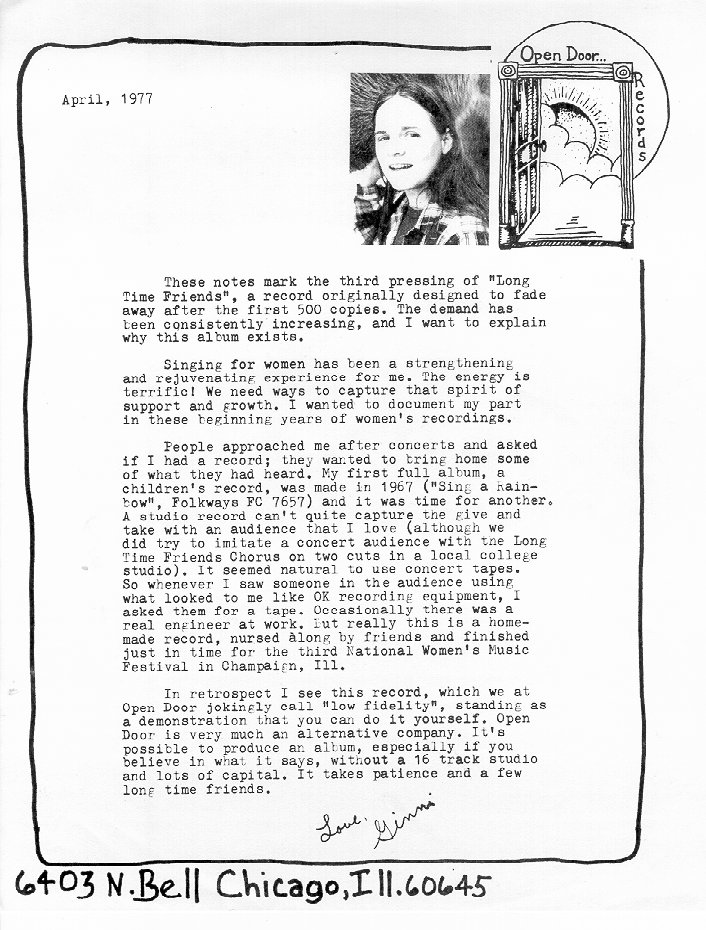 Open Door...
Records
April, 1977
These notes mark the third pressing of "Long
Time Friends", a record originally designed to fade
away after the first 500 copies. The demand has
been consistently increasing, and I want to explain
why this album exists.
Singing for women has been a strengthening
and rejuvenating experience for me. The energy is
terrific! We need ways to capture that spirit of
support and growth. I wanted to document my part
in these beginning years of women's recordings.
People approached me after concerts and asked
if I had a record; they wanted to bring home some
of what they had heard. My first full album, a
children's record, was made in 1967 ("Sing a Rain-
bow", Folkways FC 7657) and it was time for another.
A studio record can't quite capture the give and
take with an audience that I love (although we
did try to imitate a concert audience with the Long
Time Friends Chorus on two cuts in a local college
studio). It seemed natural to use concert tapes.
So whenever I saw someone in the audience using
what looked to me like OK recording equipment, I
asked them for a tape. Occasionally there was a
real engineer at work. But really this is a home-
made record, nursed along by friends and finished
just in time for the third National Women's Music
Festival in Champaign, Ill.
In retrospect I see this record, which we at
Open Door jokingly call "low fidelity", standing as
a demonstration that you can do it yourself. Open
Door is very much an alternative company. It's
possible to produce an album, especially if you
believe in what it says, without a 16 track studio
and lots of capital. It takes patience and a few
long time friends.
Love, Ginni
6403 N. Bell Chicago, Ill. 60645